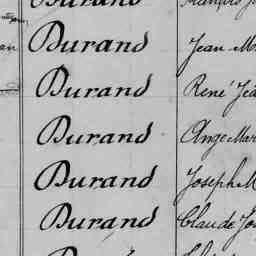 Durand
Durand Jean
Durand René
Durand Ange
Durand Joseph
Durand Claude